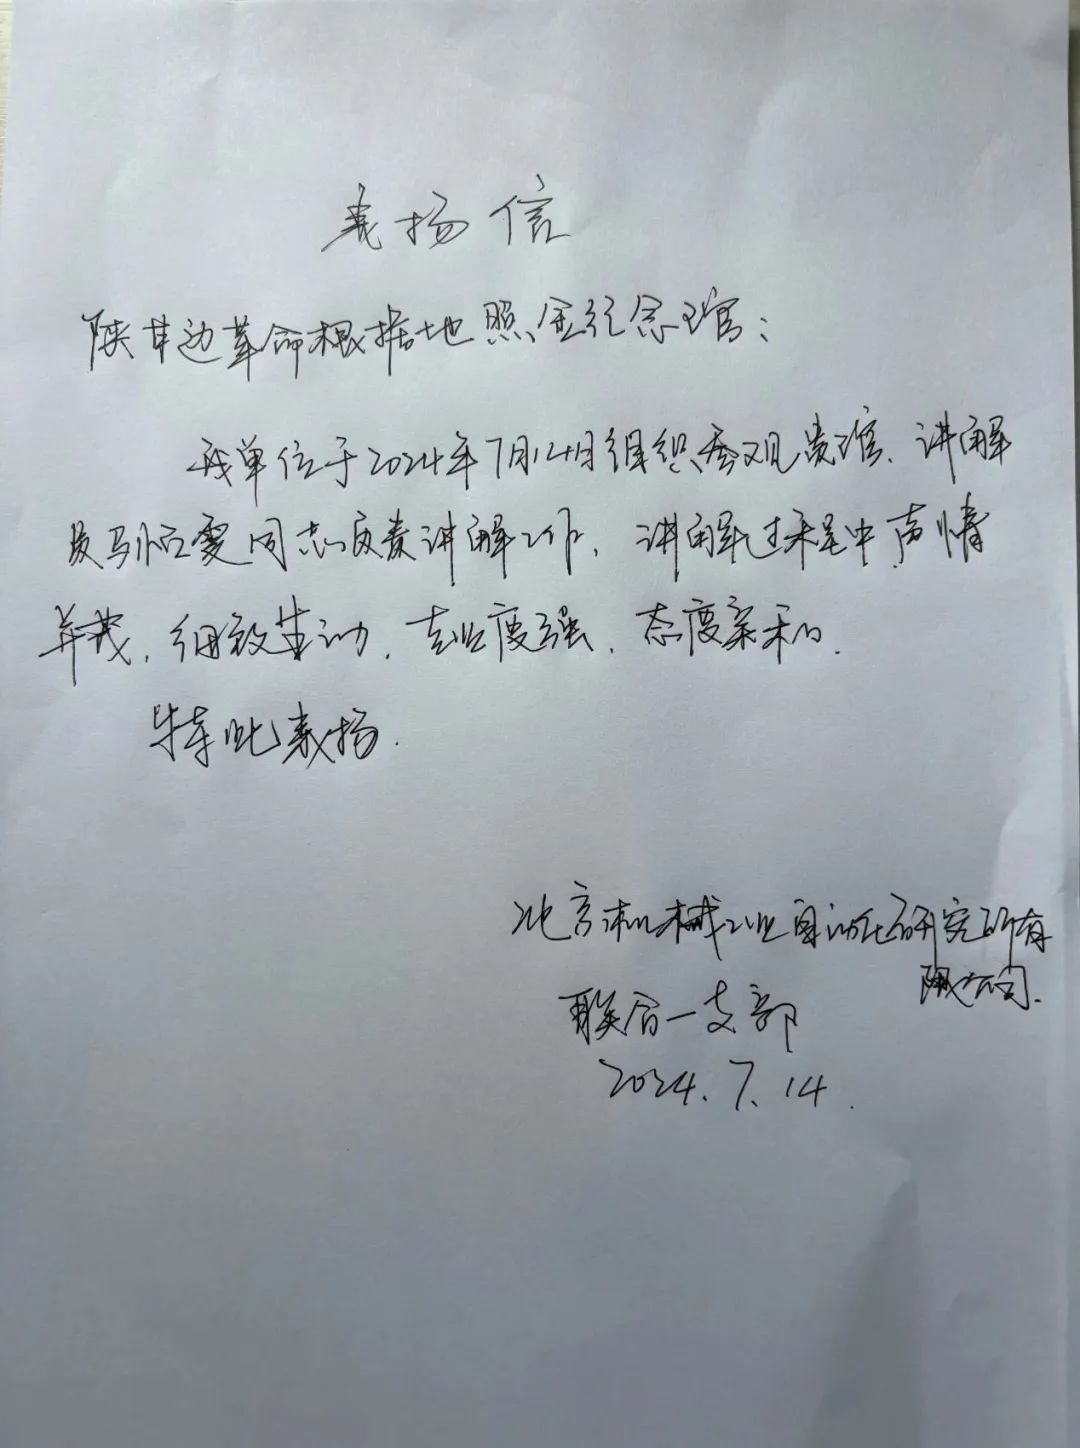 表扬信
陕甘边革命根据地照金纪念馆：
我单位于2024年7月14日组织参观贵馆、讲解
员马恒雯同志负责讲解工作、讲解过程中声情
并茂、细致生动、专业度强、态度亲和。
特此表扬.
北京机械工业自动化研究所有
限公司.
联合一支部
2024.7.14.